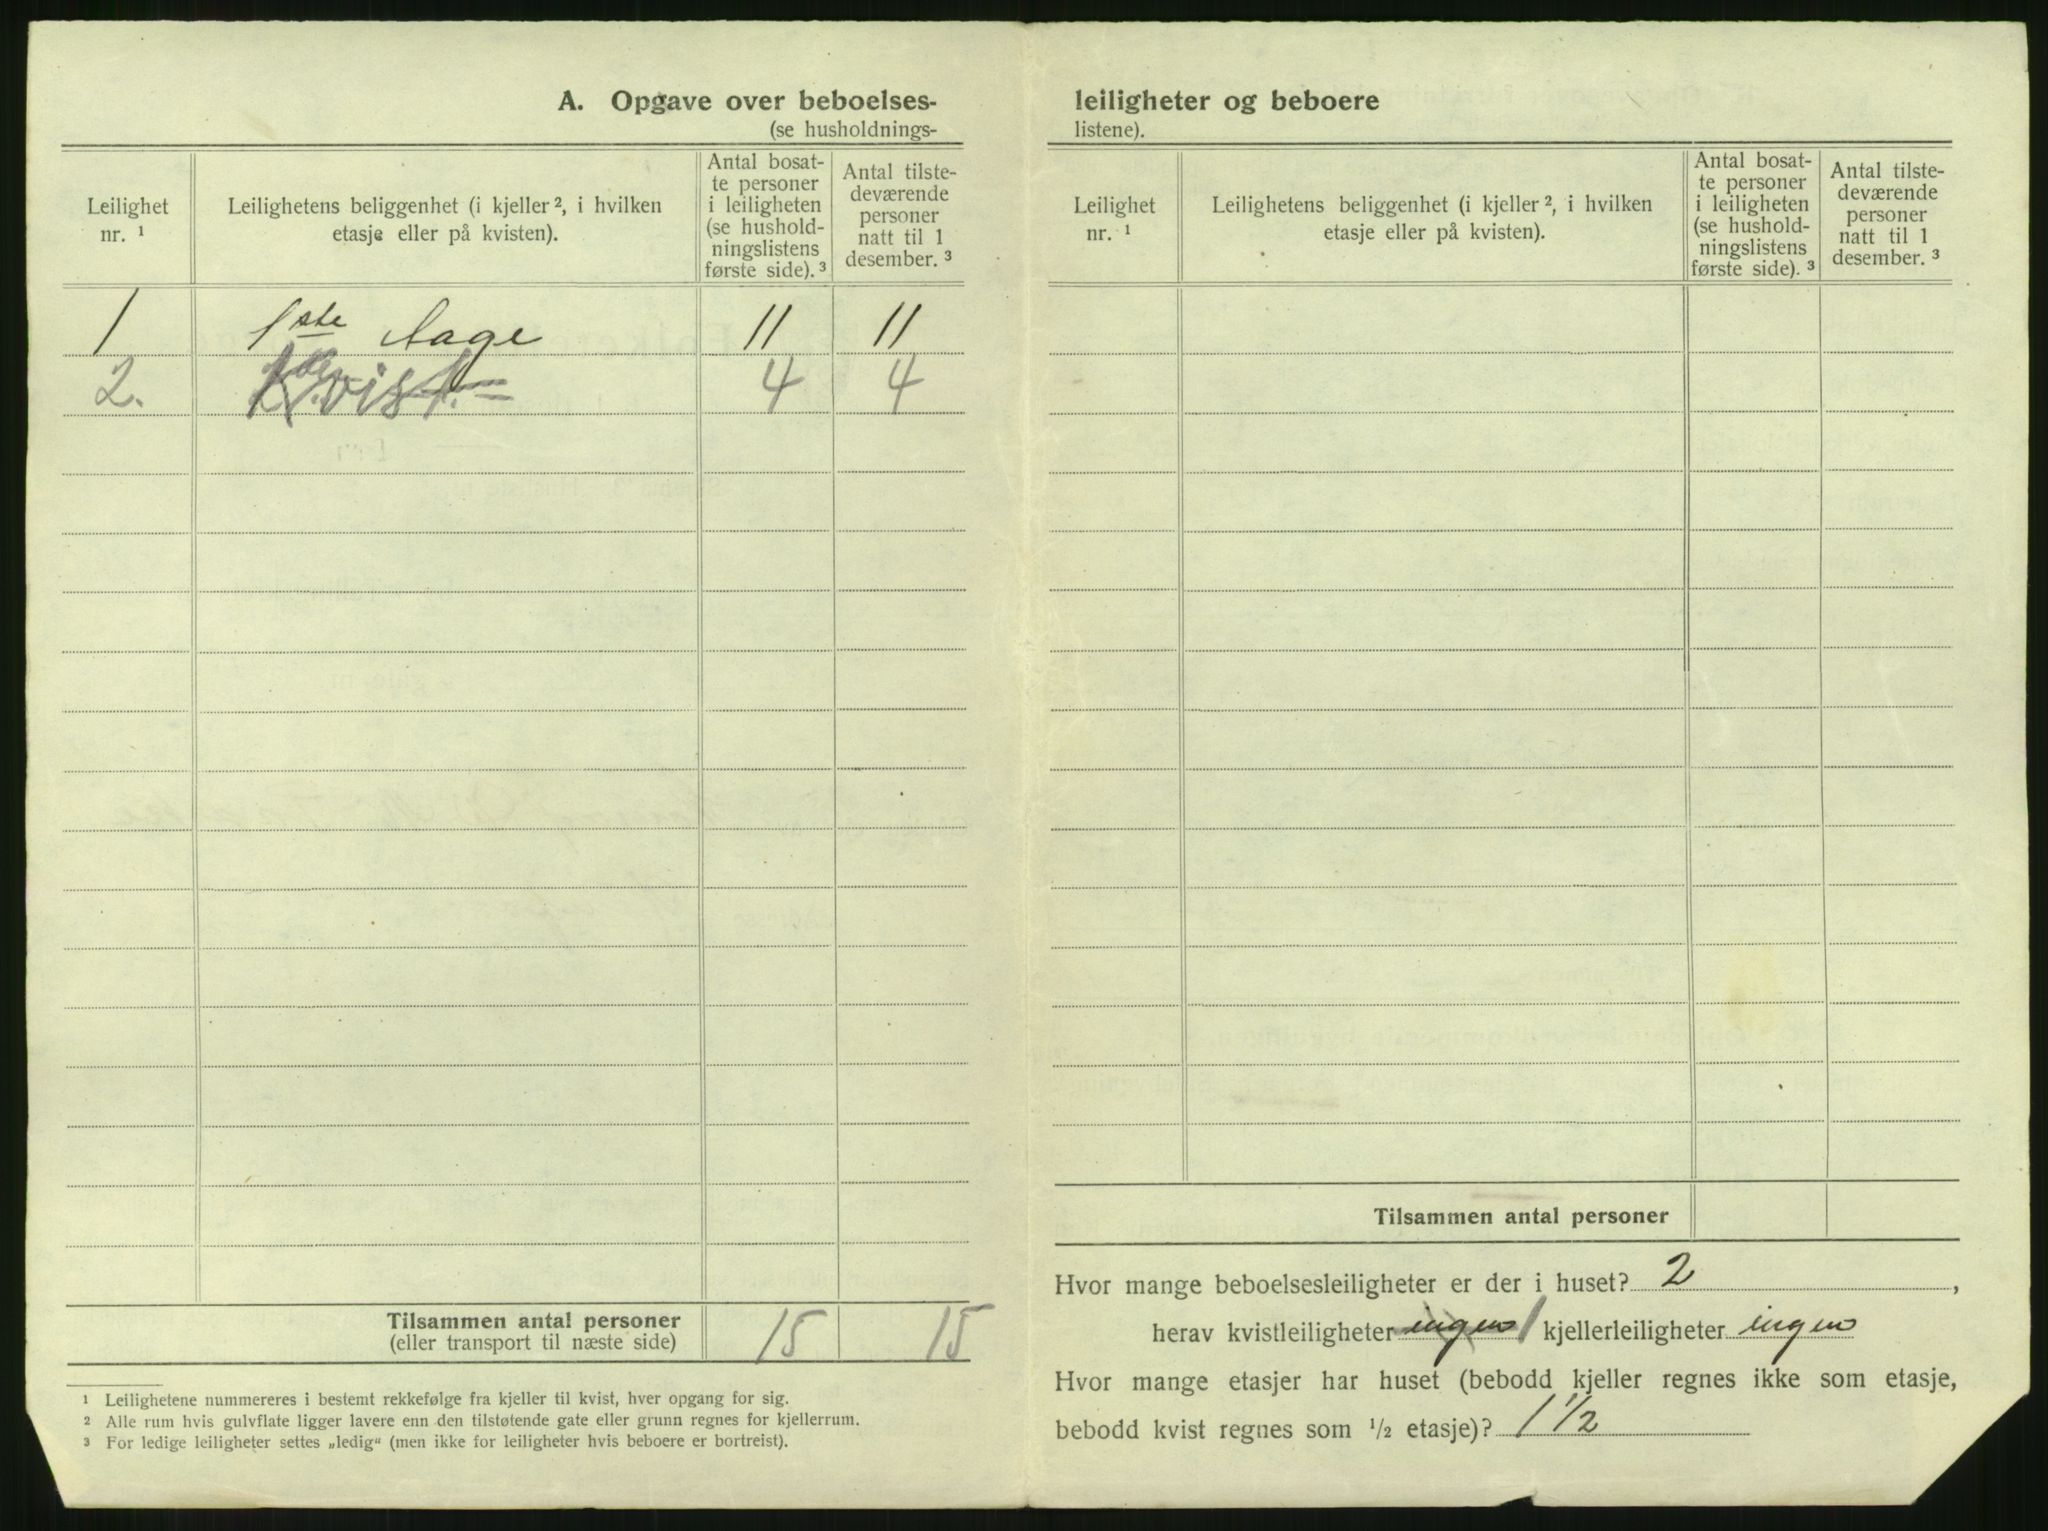 A. Opgave over beboelses-
(se husholdnings-
Leilighet
nr. ¹
Leilighetens beliggenhet (i kjeller ², i hvilken
etasje eller på kvisten).
Antal bosat-
te personer
i leiligheten
(se hushold-
ningslistens
første side). ³
Antal tilste-
deværende
personer
natt til 1
desember. ³
1 1ste tage 11 11
2. Kvist. 4 4
Tilsammen antal personer 15 15
(eller transport til næste side)
¹ Leilighetene nummereres i bestemt rekkefølge fra kjeller til kvist, hver opgang for sig.
² Alle rum hvis gulvflate ligger lavere enn den tilstøtende gate eller grunn regnes for kjellerrum.
³ For ledige leiligheter settes „ledig“ (men ikke for leiligheter hvis beboere er bortreist).
leiligheter og beboere
listene).
Leilighet
nr. ¹
Leilighetens beliggenhet (i kjeller ², i hvilken
etasje eller på kvisten).
Antal bosat-
te personer
i leiligheten
(se hushold-
ningslistens
første side). ³
Antal tilste-
deværende
personer
natt til 1
desember. ³
Tilsammen antal personer
Hvor mange beboelsesleiligheter er der i huset? 2,
herav kvistleiligheter ingen 1 kjellerleiligheter ingen
Hvor mange etasjer har huset (bebodd kjeller regnes ikke som etasje,
bebodd kvist regnes som ½ etasje)? 1 ½